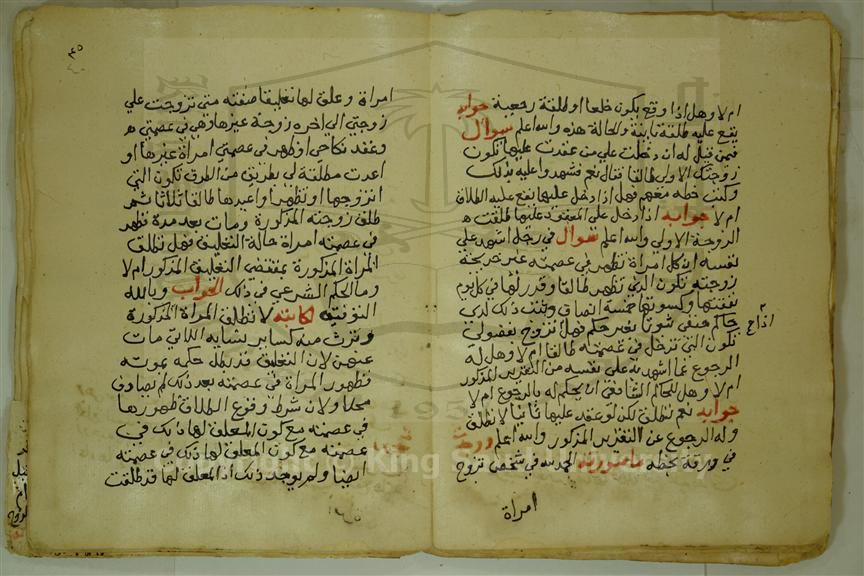 ام لا وهل اذا وقع يكون خلعا او طلقة رجعية جوابه
يقع عليه طلقة بائنة والحالة هذه والله اعلم سوال
فيمن قيل له ان دخلت علي من عقدت عليها تكون
زوجتك الاولى طالقا فقال نعم فشهدوا عليه بذلك
وكتب خطه معهم فهل اذا دخل عليها يقع عليه الطلاق
ام لا جوابه اذا دخل على المعقود عليها طلقت ه
الزوجة الاولى والله اعلم سوال في رجل اشهد على
نفسه ان كل امراة تظهر في عصمته غير خديجة
زوجته تكون التي تظهر طالقا وقرر لها في كل يوم
نفقتها وكسوتها خمسة انصاف وثبت ذلك لدى
حاكم حنفي ثبوتا بغير حكم فهل تزوج بفضولي
تكون التي تدخل في عصمته طالقا ام لا وهل له
الرجوع عما اشهد به على نفسه من التقرير المذكور
ام لا وهل للحاكم الشافعي ان يحكم له بالرجوع ام لا
جوابه نعم تطلق لكن لو عقد عليها ثانيا لا تطلق
وله الرجوع عن التقرير المذكور والله اعلم
في ورقة بخطه ما صورته الحمد لله في شخص تزوج
امراة
امراة وعلق لها تعليقا صفته متى تزوجت علي
زوجتي الى اخره زوجة غيرها وهي في عصمتي ه
وعقد نكاحي او ظهر في عصمتي امراة غيرها او
اعدت مطلقة لي بطريق من الطرق تكون التي
اتزوجها او تظهر او اعيدها طالقا ثلاثا ثم
طلق زوجته المذكورة ومات بعد مدة فظهر
في عصمته امراة حالة التعليق فهل تطلق
المراة المذكورة بمقتضى التعليق المذكور ام لا
وما الحكم الشرعي في ذلك الجواب وبالله
التوفيق لا تطلق المراة المذكورة
وترث منه كساير نسايه اللاتي مات
عنهن لان التعليق قد بطل حكمه بموته
فظهور المراة في عصمته بعد ذلك لم يصادف
محلا ولان شرط وقوع الطلاق ظهورها
في عصمته مع كون المعلق لها ذلك في
عصمته مع كون المعلق لها ذلك في عصمته
ايضا ولم يوجد ذلك اذ المعلق لها قد طلقت
Copyright © King Saud University